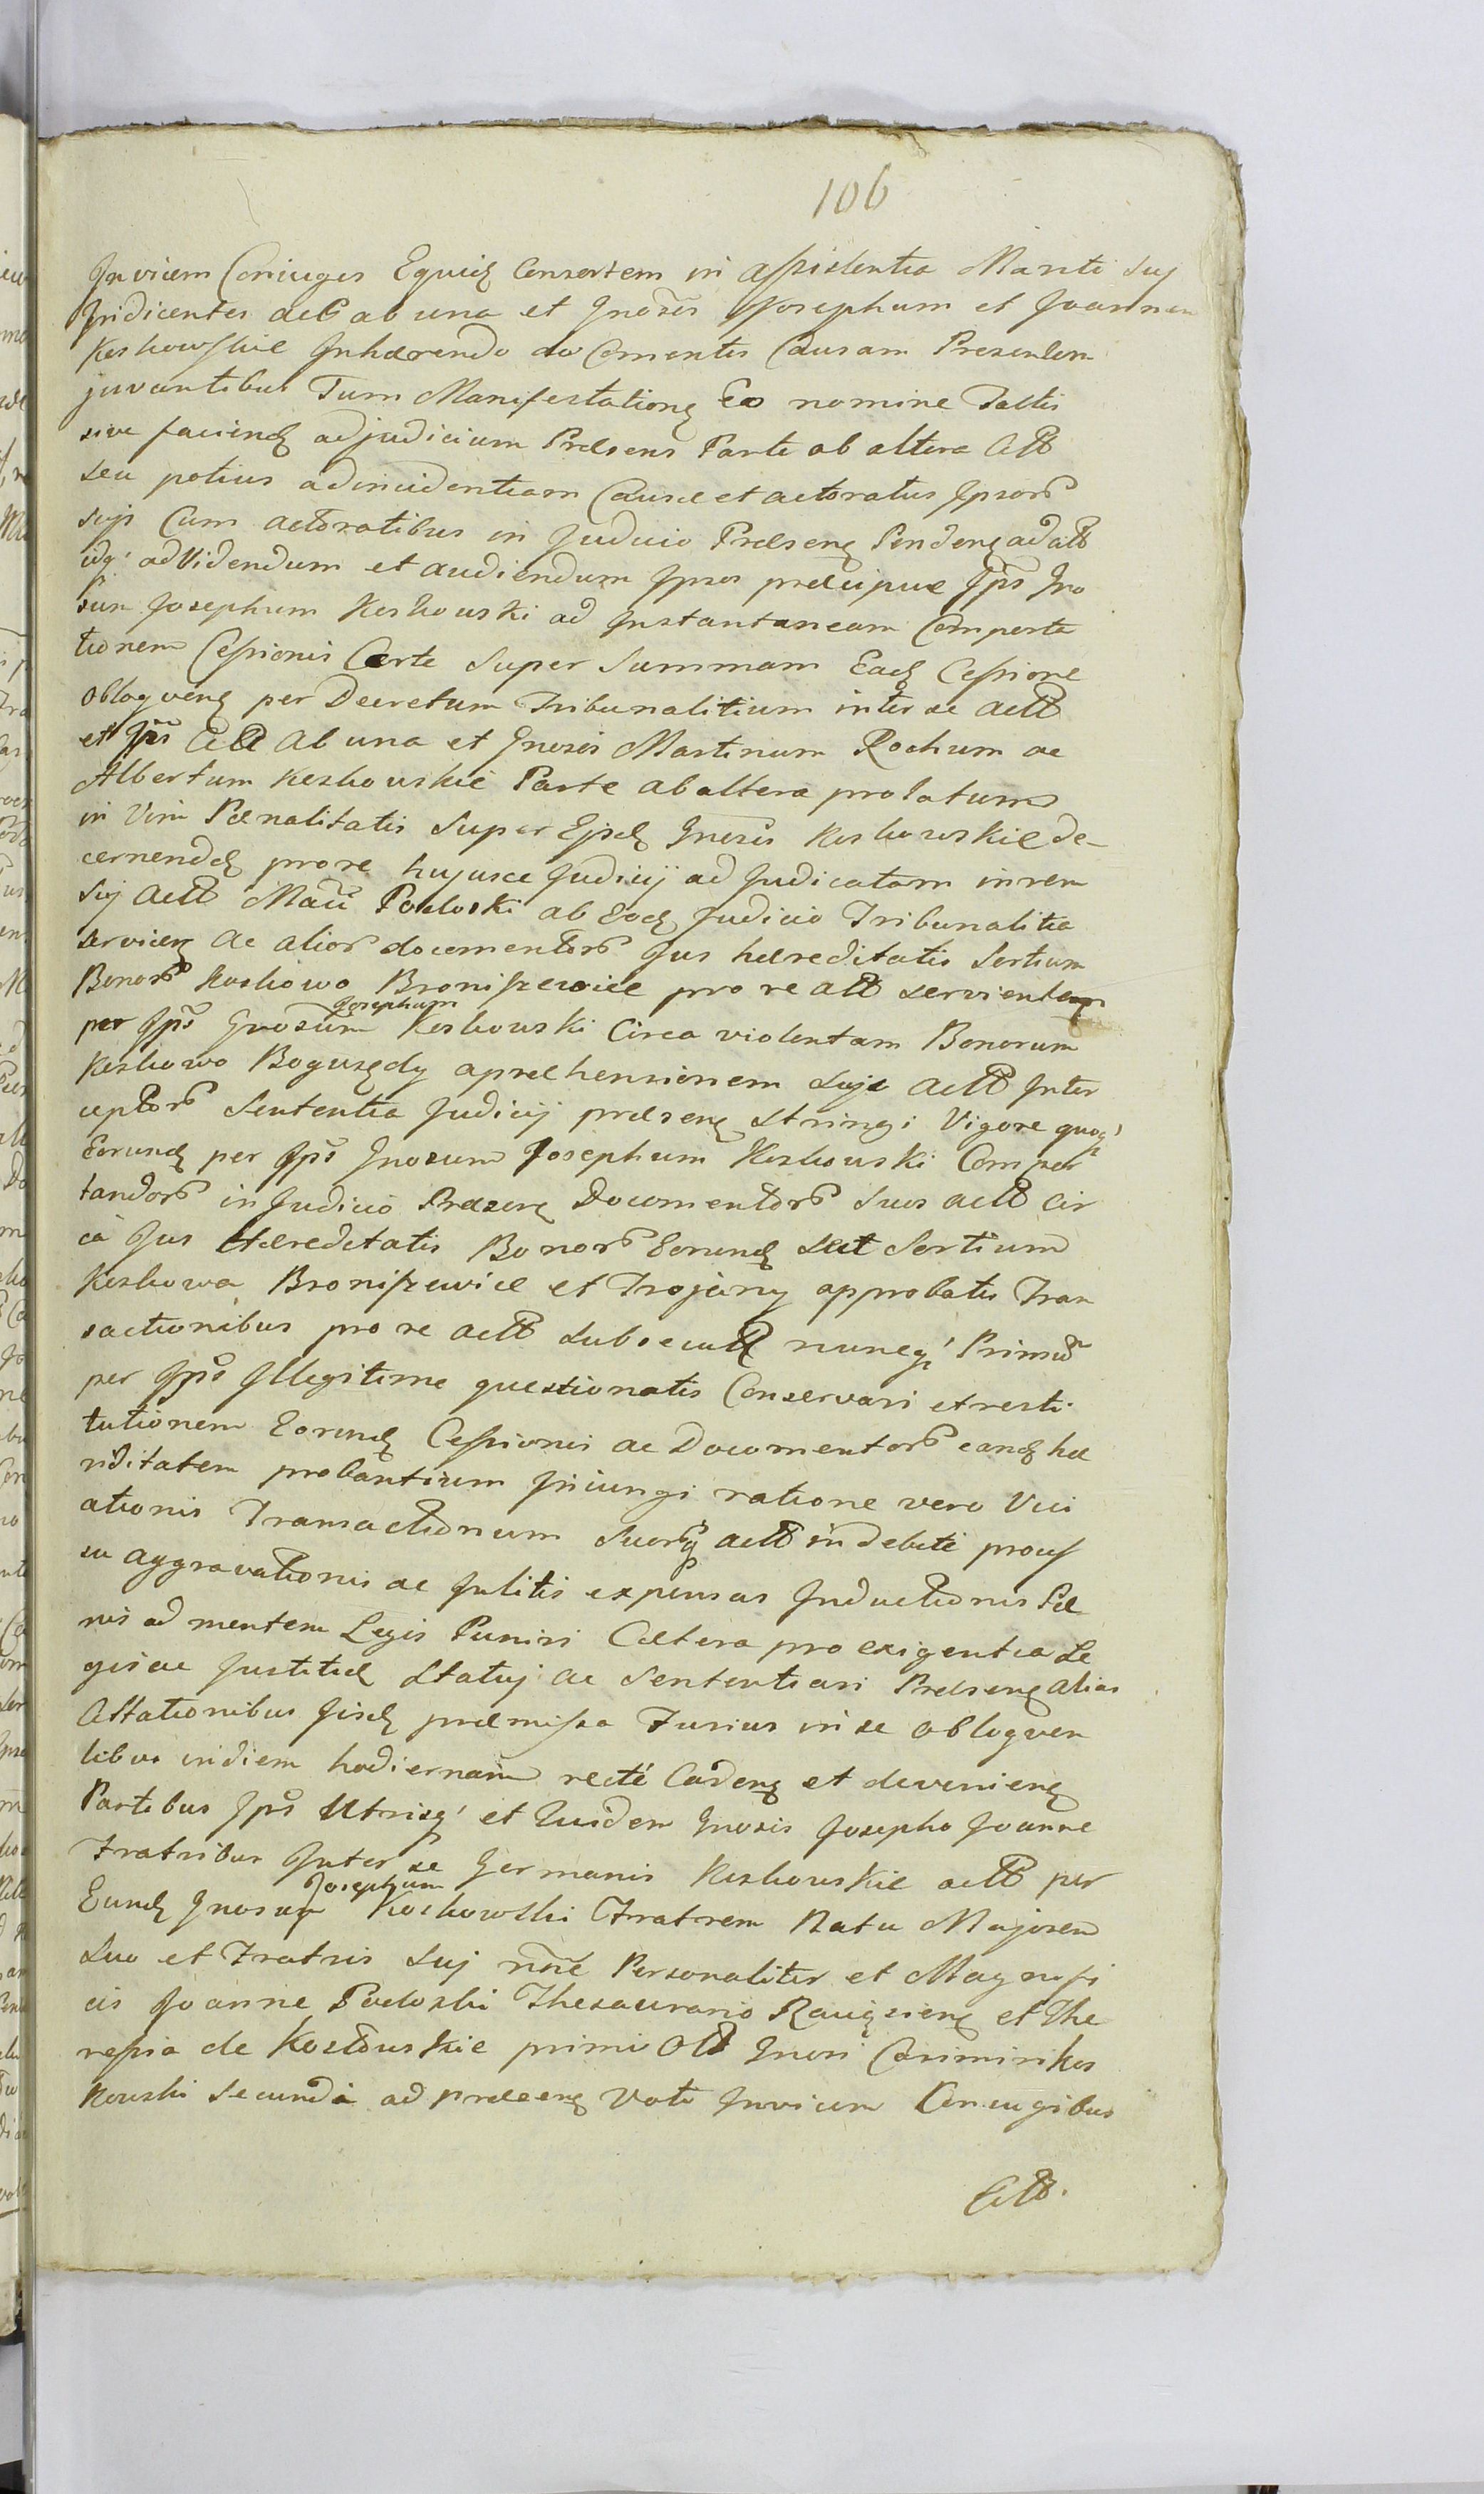 106
Invicem Coniuges Equidę Consortem in assistentia Mariti suj
Indicentes actt ab una et Gnosis Josephum et Joannem
Keskowskie Inhærendo documentis Causam Presentem
juvantibus Tum Manifestationę Eo nomine Factis
sive faciendę ad judicium Præsens Parte ab altera Actt
seu potius ad incidentiam Causæ et actoratus Ipsor
suis Cum actoratibus in Judicio Præsenę Pendenę ad actt
idq ad Videndum et audiendum Ipsos præcipue Ips Gno
sum Josephum Keskowski ad Instantaneam Comporta
tionem Cessionis Certe super Summam Eadę Cessione
obloquenę per Decretum Tribunalitium inter se actt
et Ips Actt ab una et Gnosis Martinum Rochum ac
Albertum Keskowskie Parte ab altera prolatum
in Vim Pænalitatis super Ejsdę Gnosis Keskowskie de-
cernendę pro re hujusce Judicij ad Judicatam in rem
suj Actt Poeloski ab Eodę Judicio Tribunalitio
servienę ac alior documentor Jus hæreditatis Sortium
Bonor Keskowo Broniszewice pro re actt servientem
per Ips Gnosum Josephum Keskowski Circa violentam Bonorum
Keskowo Boguszędy apræhensionem suje actt Inter
ceptor Sententia Judicij præsenę stringi Vigore quoq
Eorundę per Ips Gnosum Josephum Keskowski Compor
tandor in Judicio Præsenę Documentor suos actt cir
ca Jus Hæreditatis Bonor Eorundę seu Sortium
Keskowa Broniszewice et Trojany approbatis Tran
sactionibus pro re actt subsecutt nuncq Primum
per Ips Illegitime questionatis Conservari et resti
tutionem Eorundę Cessionis ac Documentor eandę hæ
riditatem probantium Iniungi ratione vero Vici
ationis Transactionum suorq actt indebite prous
su aggravationis ac Inlitis expensas Inductionis Pæ
nis ad mentem Legis Puniri Cætera pro exigentia Le
gis ac Justitiæ statuj ac Sententiari Præsenę alias
Attationibus Iisdę præmissa Fusius in se obloquen
tibus in diem hodiernam recté Cadenę et devenienę
Partibus Ips Utrisq et Quidem Gnosis Josepho Joanne
Fratribus Inter se Germanis Keskowskie actt per
Eundę Gnosum Josephum Keskowski Fratrem Natu Majorem
suo et Fratris suj nne Personaliter et Magnifi
cis Joanne Poeloski Thesaurario et The
resia de Keskowskie primi Ott Gnosi Casimiri Kes
kowski secundi ad præsenę Voti Invicem Coniugibus
Citt.